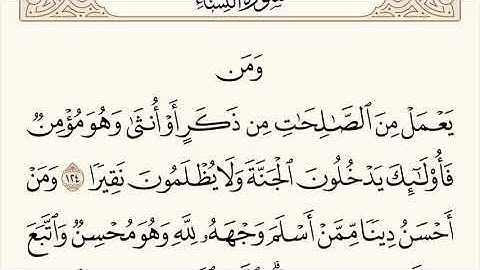 سُورَةُ النِّسَاءِ
وَمَن
يَعْمَلْ مِنَ ٱلصَّـٰلِحَـٰتِ مِن ذَكَرٍ أَوْ أُنثَىٰ وَهُوَ مُؤْمِنٌ
فَأُو۟لَـٰٓئِكَ يَدْخُلُونَ ٱلْجَنَّةَ وَلَا يُظْلَمُونَ نَقِيرًا ١٢٤ وَمَنْ
أَحْسَنُ دِينًا مِّمَّنْ أَسْلَمَ وَجْهَهُۥ لِلَّهِ وَهُوَ مُحْسِنٌ وَٱتَّبَعَ